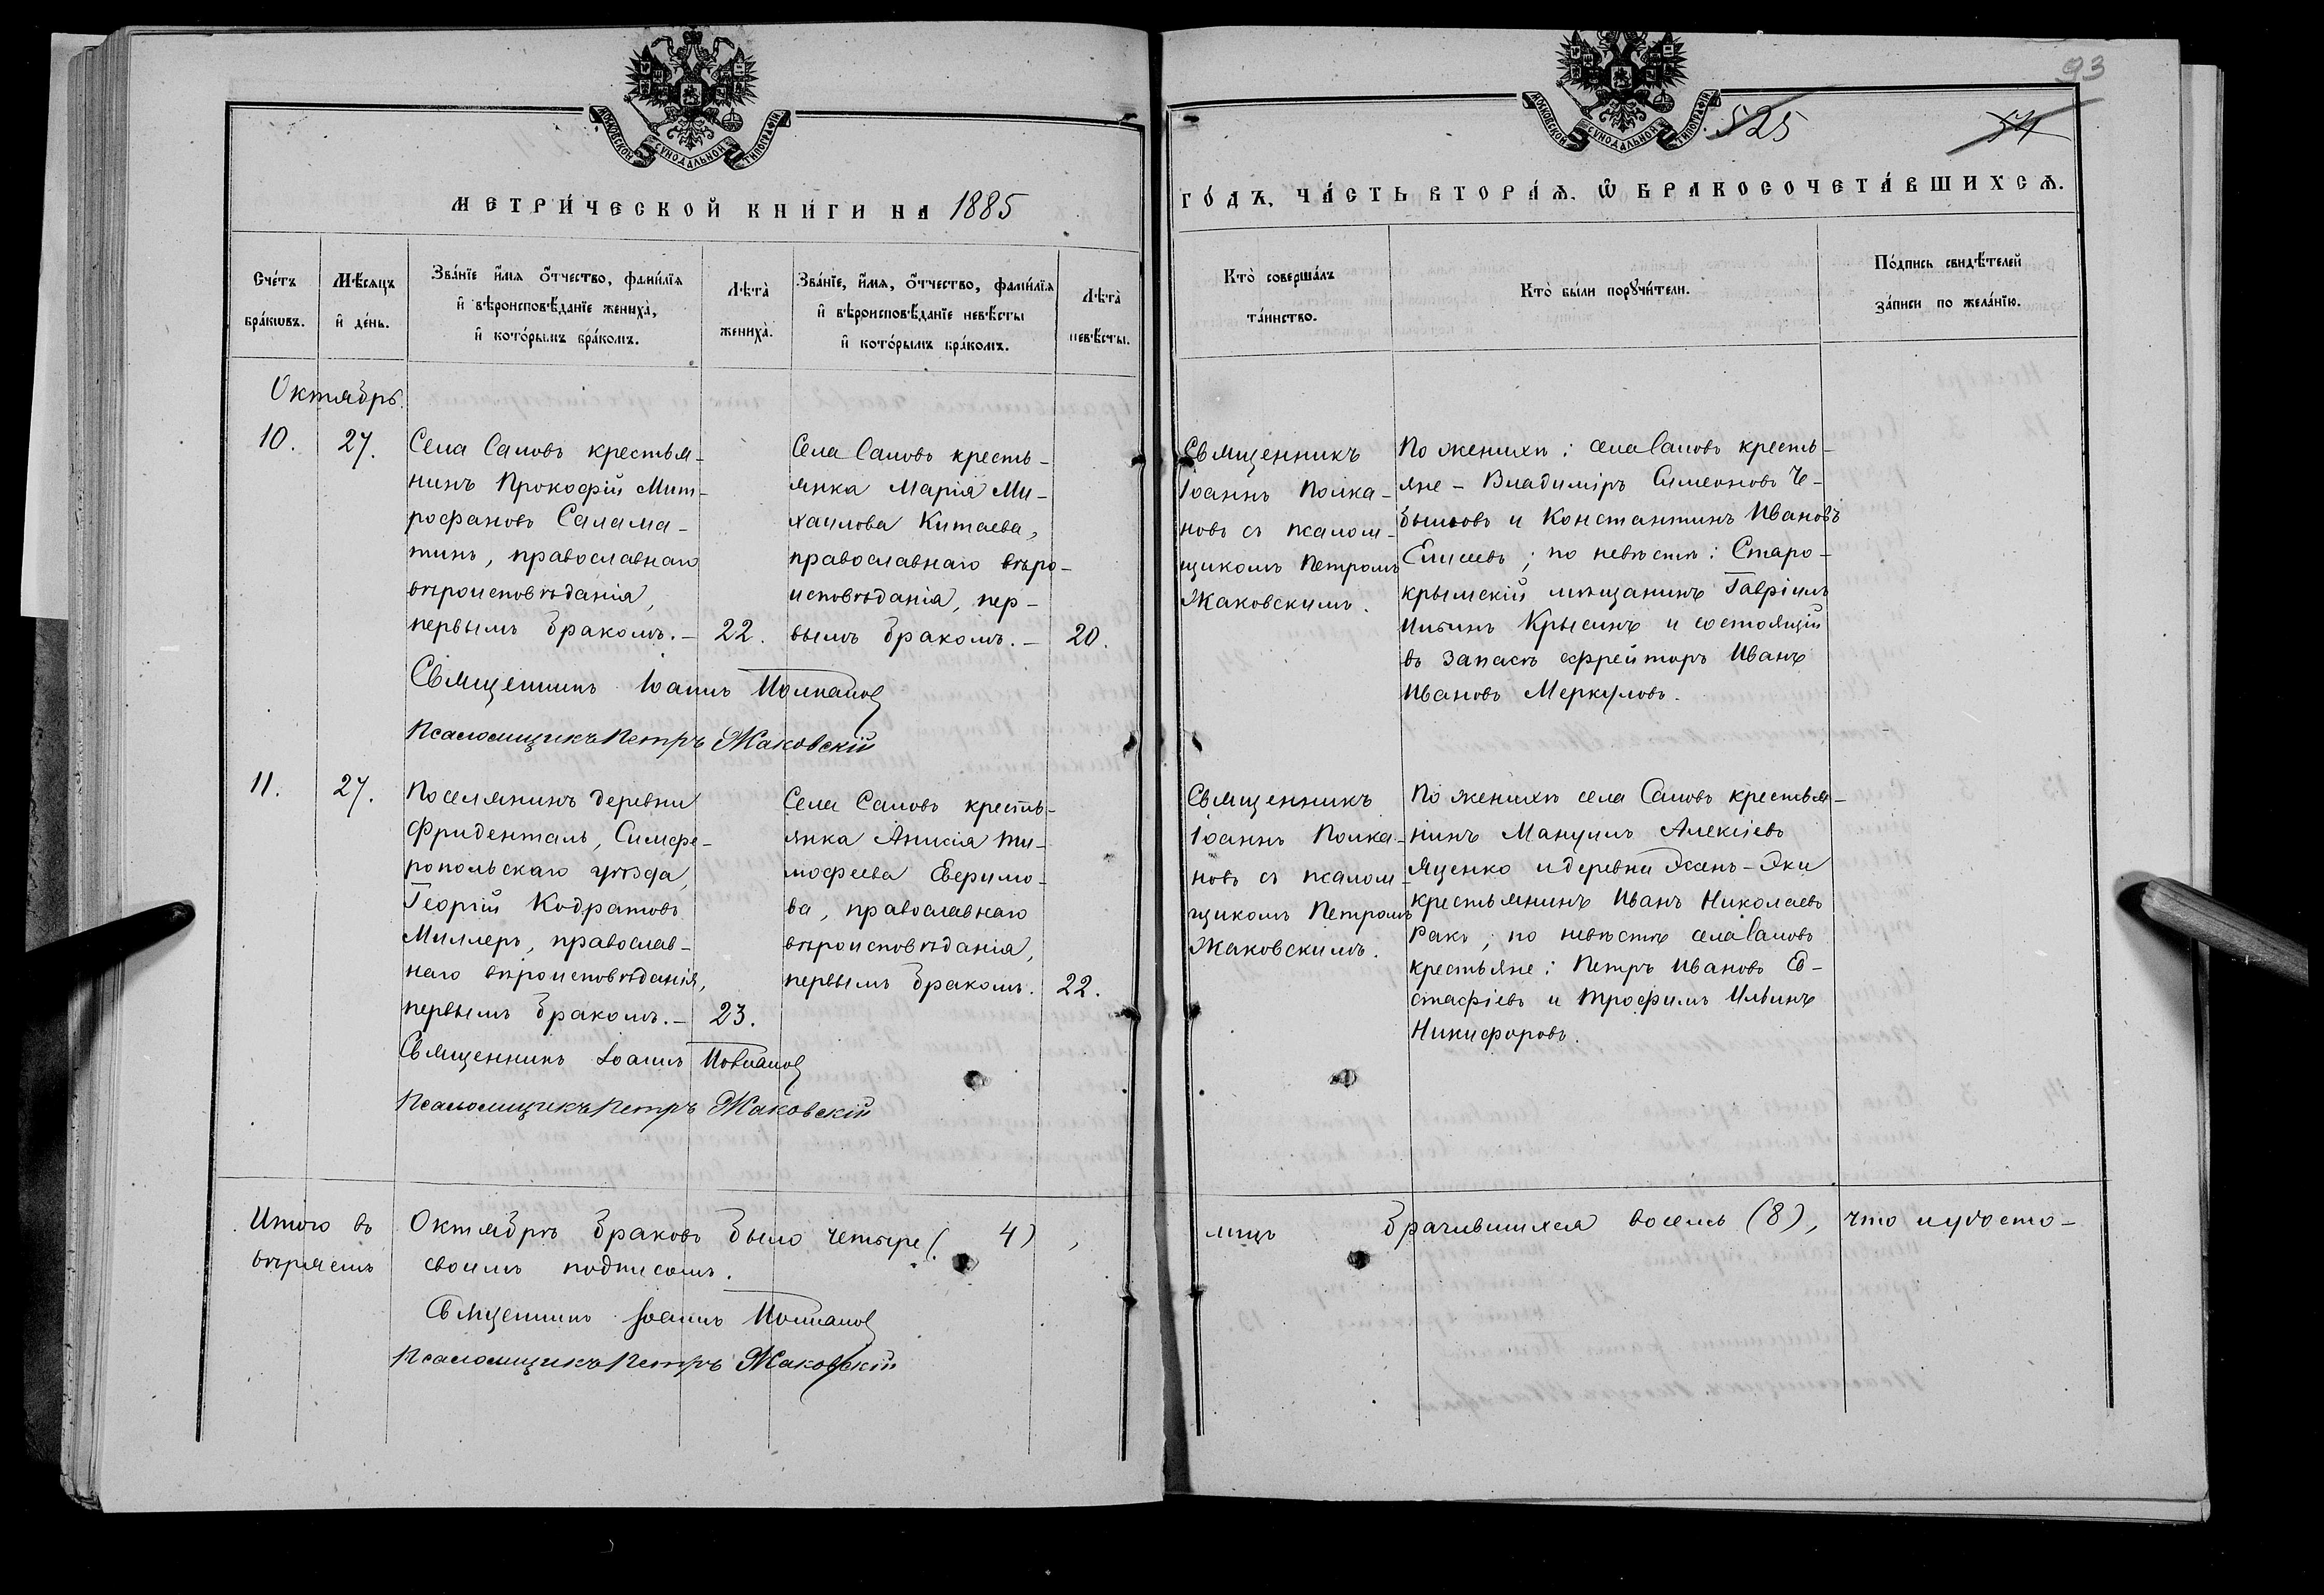 МОСКОВСКОЙ СѴНОДАЛЬНОЙ ТИПОГРАФІИ
МЕТРИ́ЧЕСКОЙ КНИ́ГИ НА 1885
Сче́тъ
бра́кωвъ.
Мѣ́сяцъ
и҆ де́нь.
Зва́нїе и҆́мя ѻ҆́тчество, фами́лїя
и҆ вѣроисповѣ́данїе жениха̀,
и҆ кото́рымъ бра́комъ.
Лѣта̀
жениха̀.
Зва́нїе, и҆́мя, ѻ҆́тчество, фами́лїя
и҆ вѣроисповѣ́данїе невѣ́сты
и҆ кото́рымъ бра́комъ.
Лѣта̀
невѣ́сты.
Октябрь.
10.
27.
Села Саловъ крестья-
нинъ Прокофій Мит-
рофановъ Салама-
тинъ, православнаго
вѣроисповѣданія,
первымъ бракомъ. –
22.
Села Саловъ кресть-
янка Марія Ми-
хаилова Китаева,
православнаго вѣро-
исповѣданія, пер-
вымъ бракомъ. –
20.
Священникъ Іоаннъ Полкановъ
Псаломщикъ Петръ Жаковскій
11.
27.
Поселянинъ деревни
Фриденталь, Симфе-
ропольскаго уѣзда,
Георгій Кодратовъ
Миллеръ, православ-
наго вѣроисповѣданія,
первымъ бракомъ. –
23.
Села Саловъ кресть-
янка Анисія Ти-
мофеева Еверимо-
ва, православнаго
вѣроисповѣданія,
первымъ бракомъ.
22.
Священникъ Іоаннъ Полкановъ
Псаломщикъ Петръ Жаковскій
Итого въ Октябрѣ браковъ было четыре (4),
вѣряемъ своимъ подписомъ.
Священникъ Іоаннъ Полкановъ
Псаломщикъ Петръ Жаковскій
93
МОСКОВСКОЙ СѴНОДАЛЬНОЙ ТИПОГРАФІИ
525
ГО́ДЪ, ЧА́СТЬ ВТОРА́Ѧ, Ѽ БРАКОСОЧЕТА́ВШИХСѦ.
Кто̀ соверша́лъ
та́инство.
Кто̀ бы́ли порꙋчи́тели.
По́дпись свидѣ́телей
за́писи по жела́нїю.
Священникъ
Іоаннъ Полка-
новъ съ псалом-
щикомъ Петромъ
Жаковскимъ.
По женихѣ: села Саловъ кресть-
яне – Владиміръ Симеоновъ Че-
и Константинъ Ивановъ
Елисеевъ; по невѣстѣ: Старо-
крымскій мѣщанинъ Гавріилъ
Ильинъ Крысинъ и состоящій
въ запасѣ ефрейторъ Иванъ
Ивановъ Меркуловъ.
Священникъ
Іоаннъ Полка-
новъ съ псалом-
щикомъ Петромъ
Жаковскимъ.
По женихѣ села Саловъ крестья-
нинъ Мануилъ Алексіевъ
Яценко и деревни Эсенъ-Эки
крестьянинъ Иванъ Николаевъ
Ракъ; по невѣстѣ села Саловъ
крестьяне: Петръ Ивановъ Ев-
стафіевъ и Трофимъ Ильинъ
Никифоровъ.
лицъ брачившихся восемь (8), что и удосто-